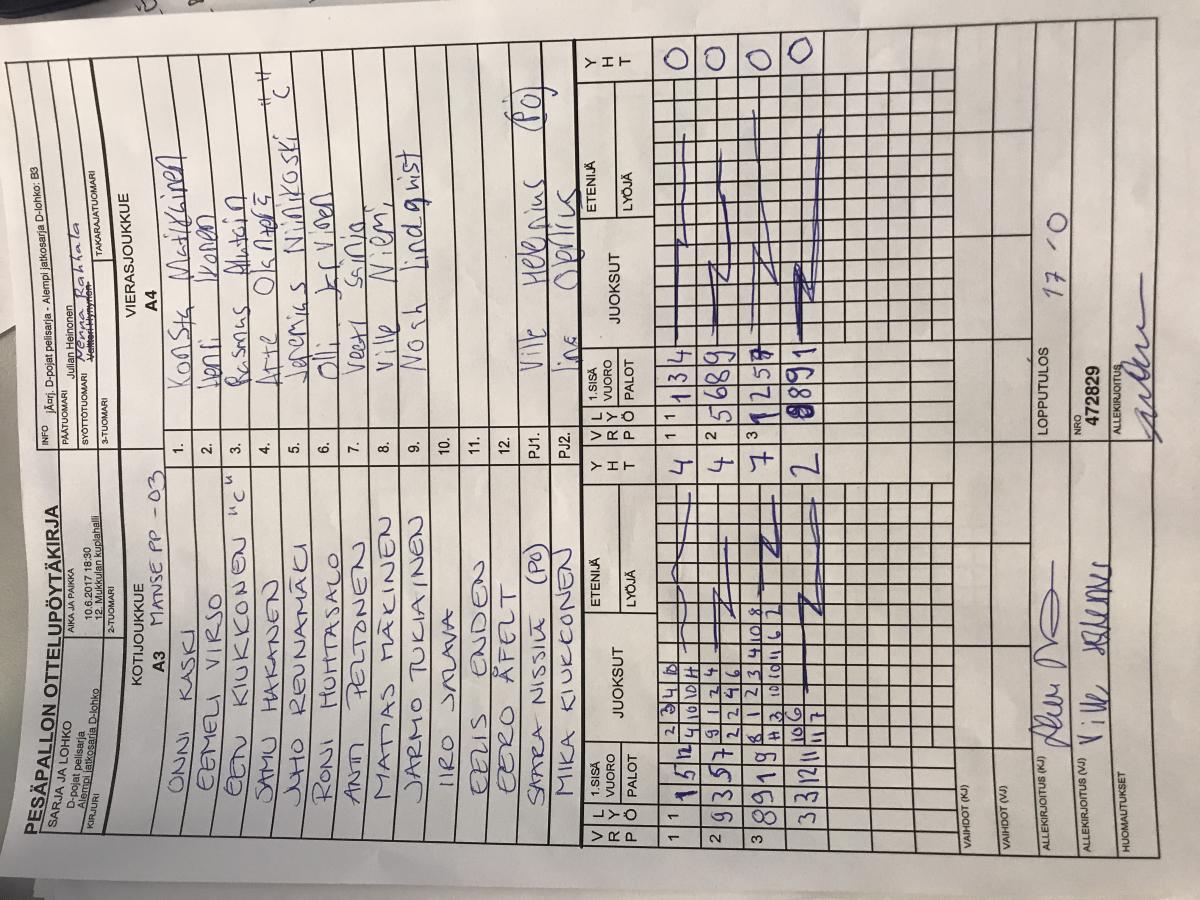 PESÄPALLON OTTELUPÖYTÄKIRJA
SARJA JA LOHKO
D-pojat pelisarja
Alempi jatkosarja D-lohko
KIRJURI
AIKA JA PAIKKA
10.6.2017 18:30
12. Mukkulan kuplahalli
2-TUOMARI
INFO jÄ¤rj. D-pojat pelisarja - Alempi jatkosarja D-lohko: B3
PÄÄTUOMARI Julian Heinonen
SYÖTTÖTUOMARI Menna Rahkala
3-TUOMARI
TAKARAJATUOMARI
KOTIJOUKKUE
A3 MANSE PP -03
VIERASJOUKKUE
A4
ONNI KASKI 1. Konsta Matikkinen
EEMELI VIRSO 2. Henri Ikonen
EETU KIUKKONEN "C" 3. Rasmus
SAMU HAKANEN 4. Arte "C"
JUHO REUNAMÄKI 5. Jeremias Niinikoski
RONI HUHTASALO 6. Olli
ANTI PELTONEN 7. Veeti
MATIAS MÄKINEN 8. Ville Niemi
JARMO TUKIAINEN 9. Noah Lindqvist
IIRO SALAVA 10.
EELIS ENDEN 11.
EERO ÅFELT 12.
SAARA NISSILÄ (PÖ) PJ1. Ville Helenius (PÖ)
MIKA KIUKKONEN PJ2.
V R P L Y Ö 1.SISÄ VUORO PALOT JUOKSUT ETENIJÄ LYÖJÄ Y H T V R P L Y Ö 1.SISÄ VUORO PALOT JUOKSUT ETENIJÄ LYÖJÄ Y H T
1 1 1 5 12 2 3 4 10 4 1 1 1 3 4 0
4 10 10 11
2 9 3 5 7 9 1 2 4 4 2 5 6 8 9 0
2 2 4 6
3 8 9 1 9 8 1 2 3 4 10 8 7 3 1 2 5 7 0
11 3 10 10 11 6 2
3 3 12 11 10 6 2 8 8 9 1 0
11 7
VAIHDOT (KJ)
VAIHDOT (VJ)
ALLEKIRJOITUS (KJ)
LOPPUTULOS 17 - 0
ALLEKIRJOITUS (VJ) Ville Helenius
NRO
472829
HUOMAUTUKSET
ALLEKIRJOITUS